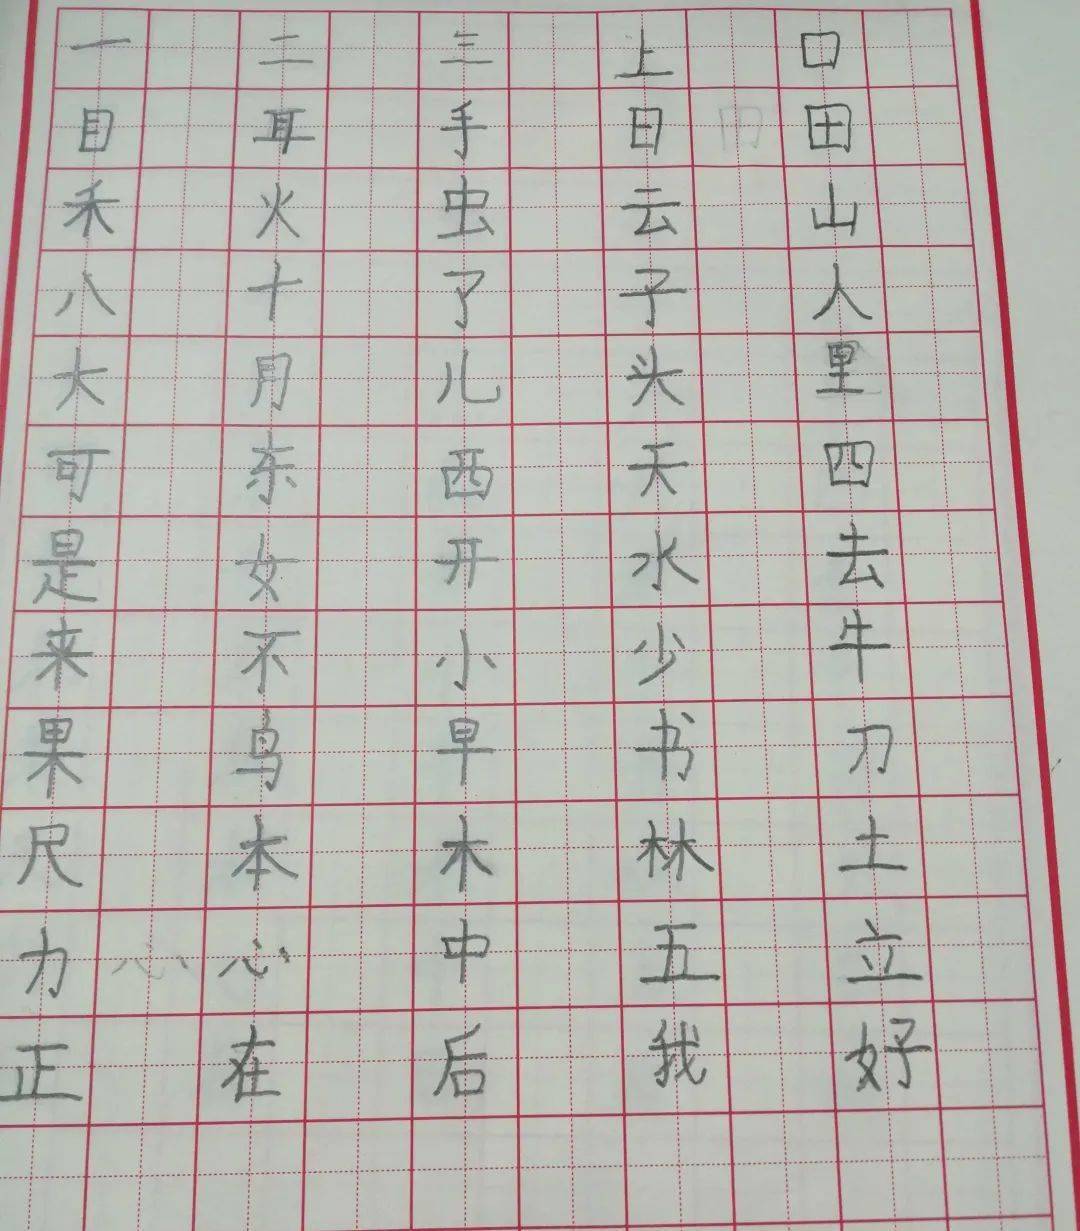 一 二 三 上 口
目 耳 手 日 田
禾 火 虫 云 山
八 十 了 子 人
大 月 儿 头 里
可 东 西 天 四
是 女 开 水 去
来 不 小 少 牛
果 鸟 早 书 刀
尺 本 木 林 土
力 心 心 中 五 立
正 在 后 我 好